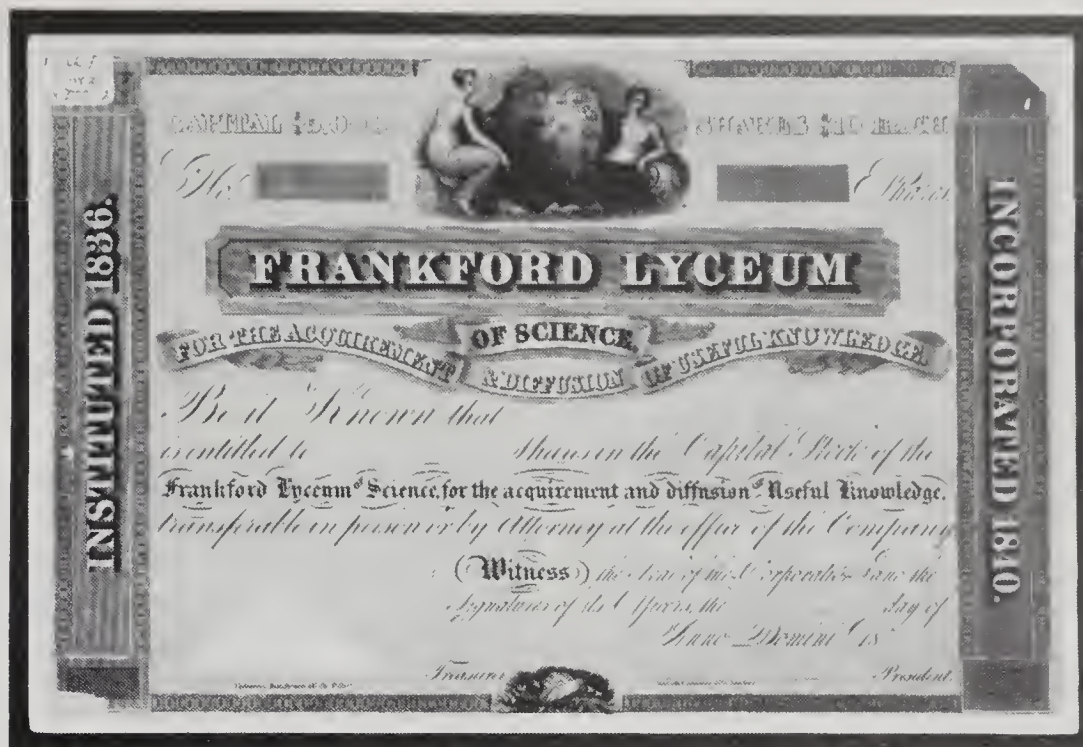 CAPITAL
SHARES $10 EACH
No.
Shares
INSTITUTED 1836.
FRANKFORD LYCEUM
OF SCIENCE,
FOR THE ACQUIREMENT & DIFFUSION OF USEFUL KNOWLEDGE.
Be it Known that
is entitled to Shares in the Capital Stock of the
Frankford Lyceum of Science, for the acquirement and diffusion of Useful Knowledge.
transferable in person or by Attorney at the office of the Company
(Witness) the Seal of the Corporation and the
Signatures of the Officers, the day of
Anno Domini 18
Treasurer
President.
INCORPORATED 1840.